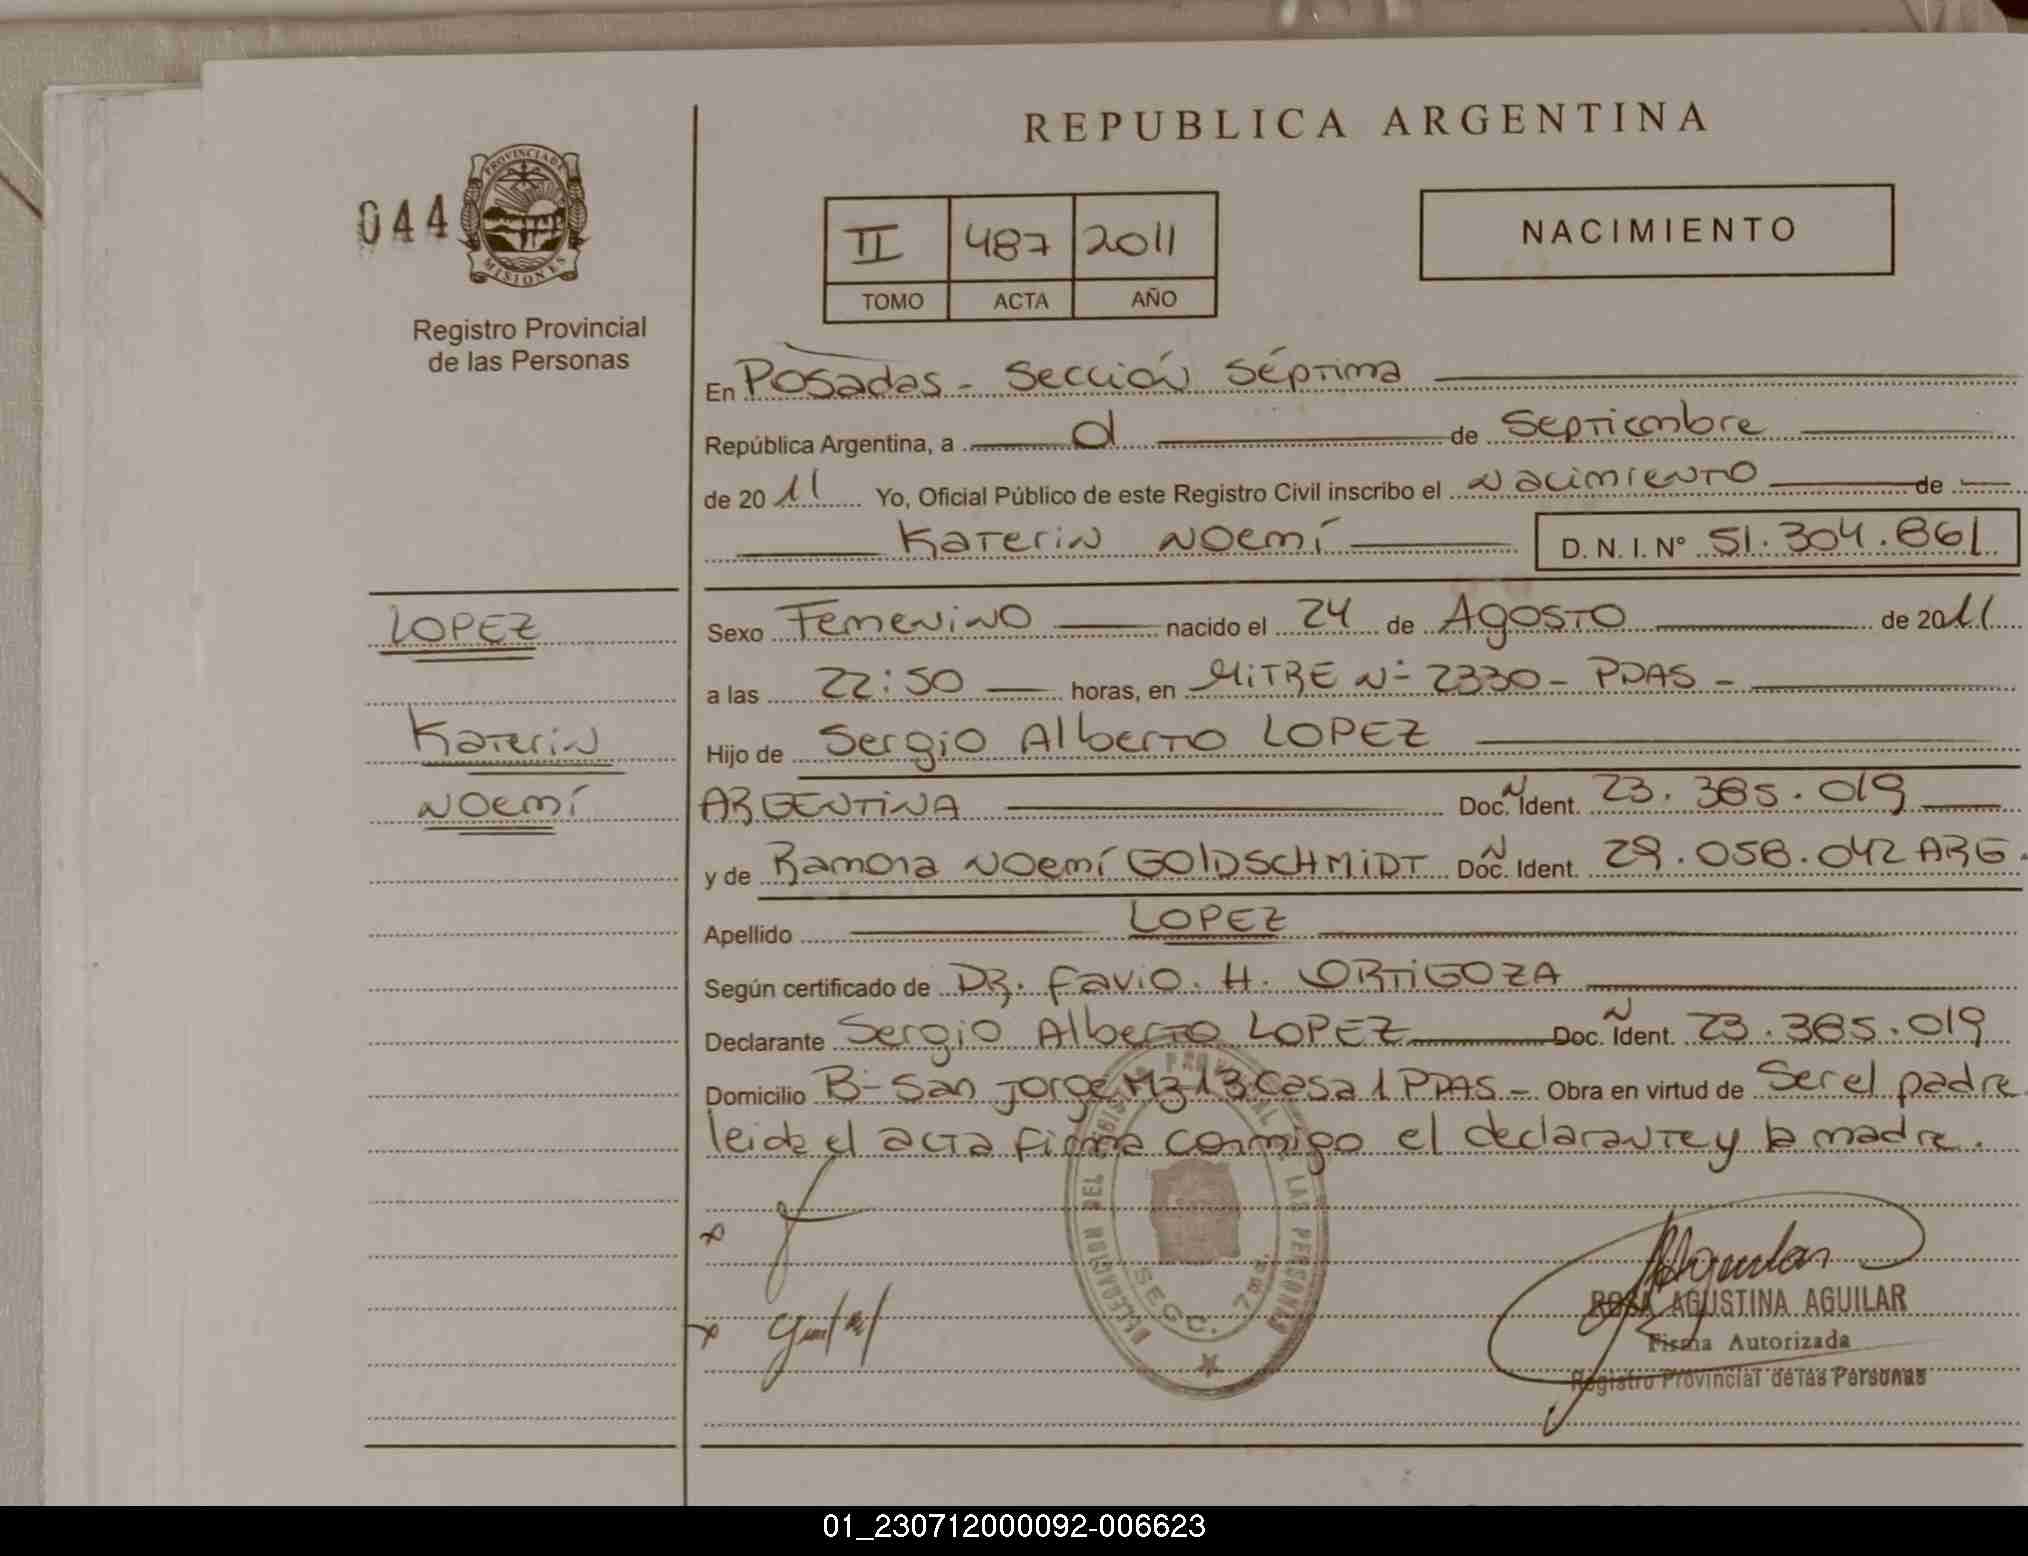 REPUBLICA ARGENTINA
044
PROVINCIA DE
MISIONES
Registro Provincial
de las Personas
II 487 2011
TOMO ACTA AÑO
NACIMIENTO
En Posadas - Sección Séptima
República Argentina, a d de Septiembre
de 2011 Yo, Oficial Público de este Registro Civil inscribo el Nacimiento de
Katerin Noemí D. N. I. N° 51.304.861
LOPEZ
Katerin
Noemí
Sexo Femenino nacido el 24 de Agosto de 2011
a las 22:50 horas, en MITRE N° 2330 - PDAS -
Hijo de Sergio Alberto LOPEZ
ARGENTINA Doc. Ident. 23.385.019
y de Ramona Noemí GOLDSCHMIDT Doc. Ident. 29.058.042 ARG.
Apellido LOPEZ
Según certificado de DR. Favio. H. ORTIGOZA
Declarante Sergio Alberto LOPEZ Doc. Ident. 23.385.019
Domicilio B- San Jorge Mz 13 Casa 1 PDAS - Obra en virtud de Ser el padre
leida el acta firma conmigo el declarante y la madre.
DELEGACION DEL REGISTRO PROVINCIAL DE LAS PERSONAS
SECC. 7ma.
ROSA AGUSTINA AGUILAR
Firma Autorizada
Registro Provincial de las Personas
01_230712000092-006623